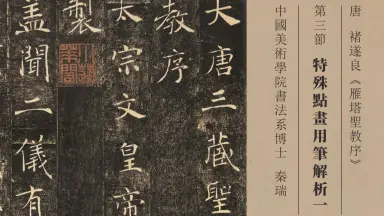 唐 褚遂良《雁塔聖教序》
第三節 特殊點畫用筆解析一
中國美術學院書法系博士 秦瑞
大唐三藏聖
教序
太宗文皇帝
製
蓋聞二儀有